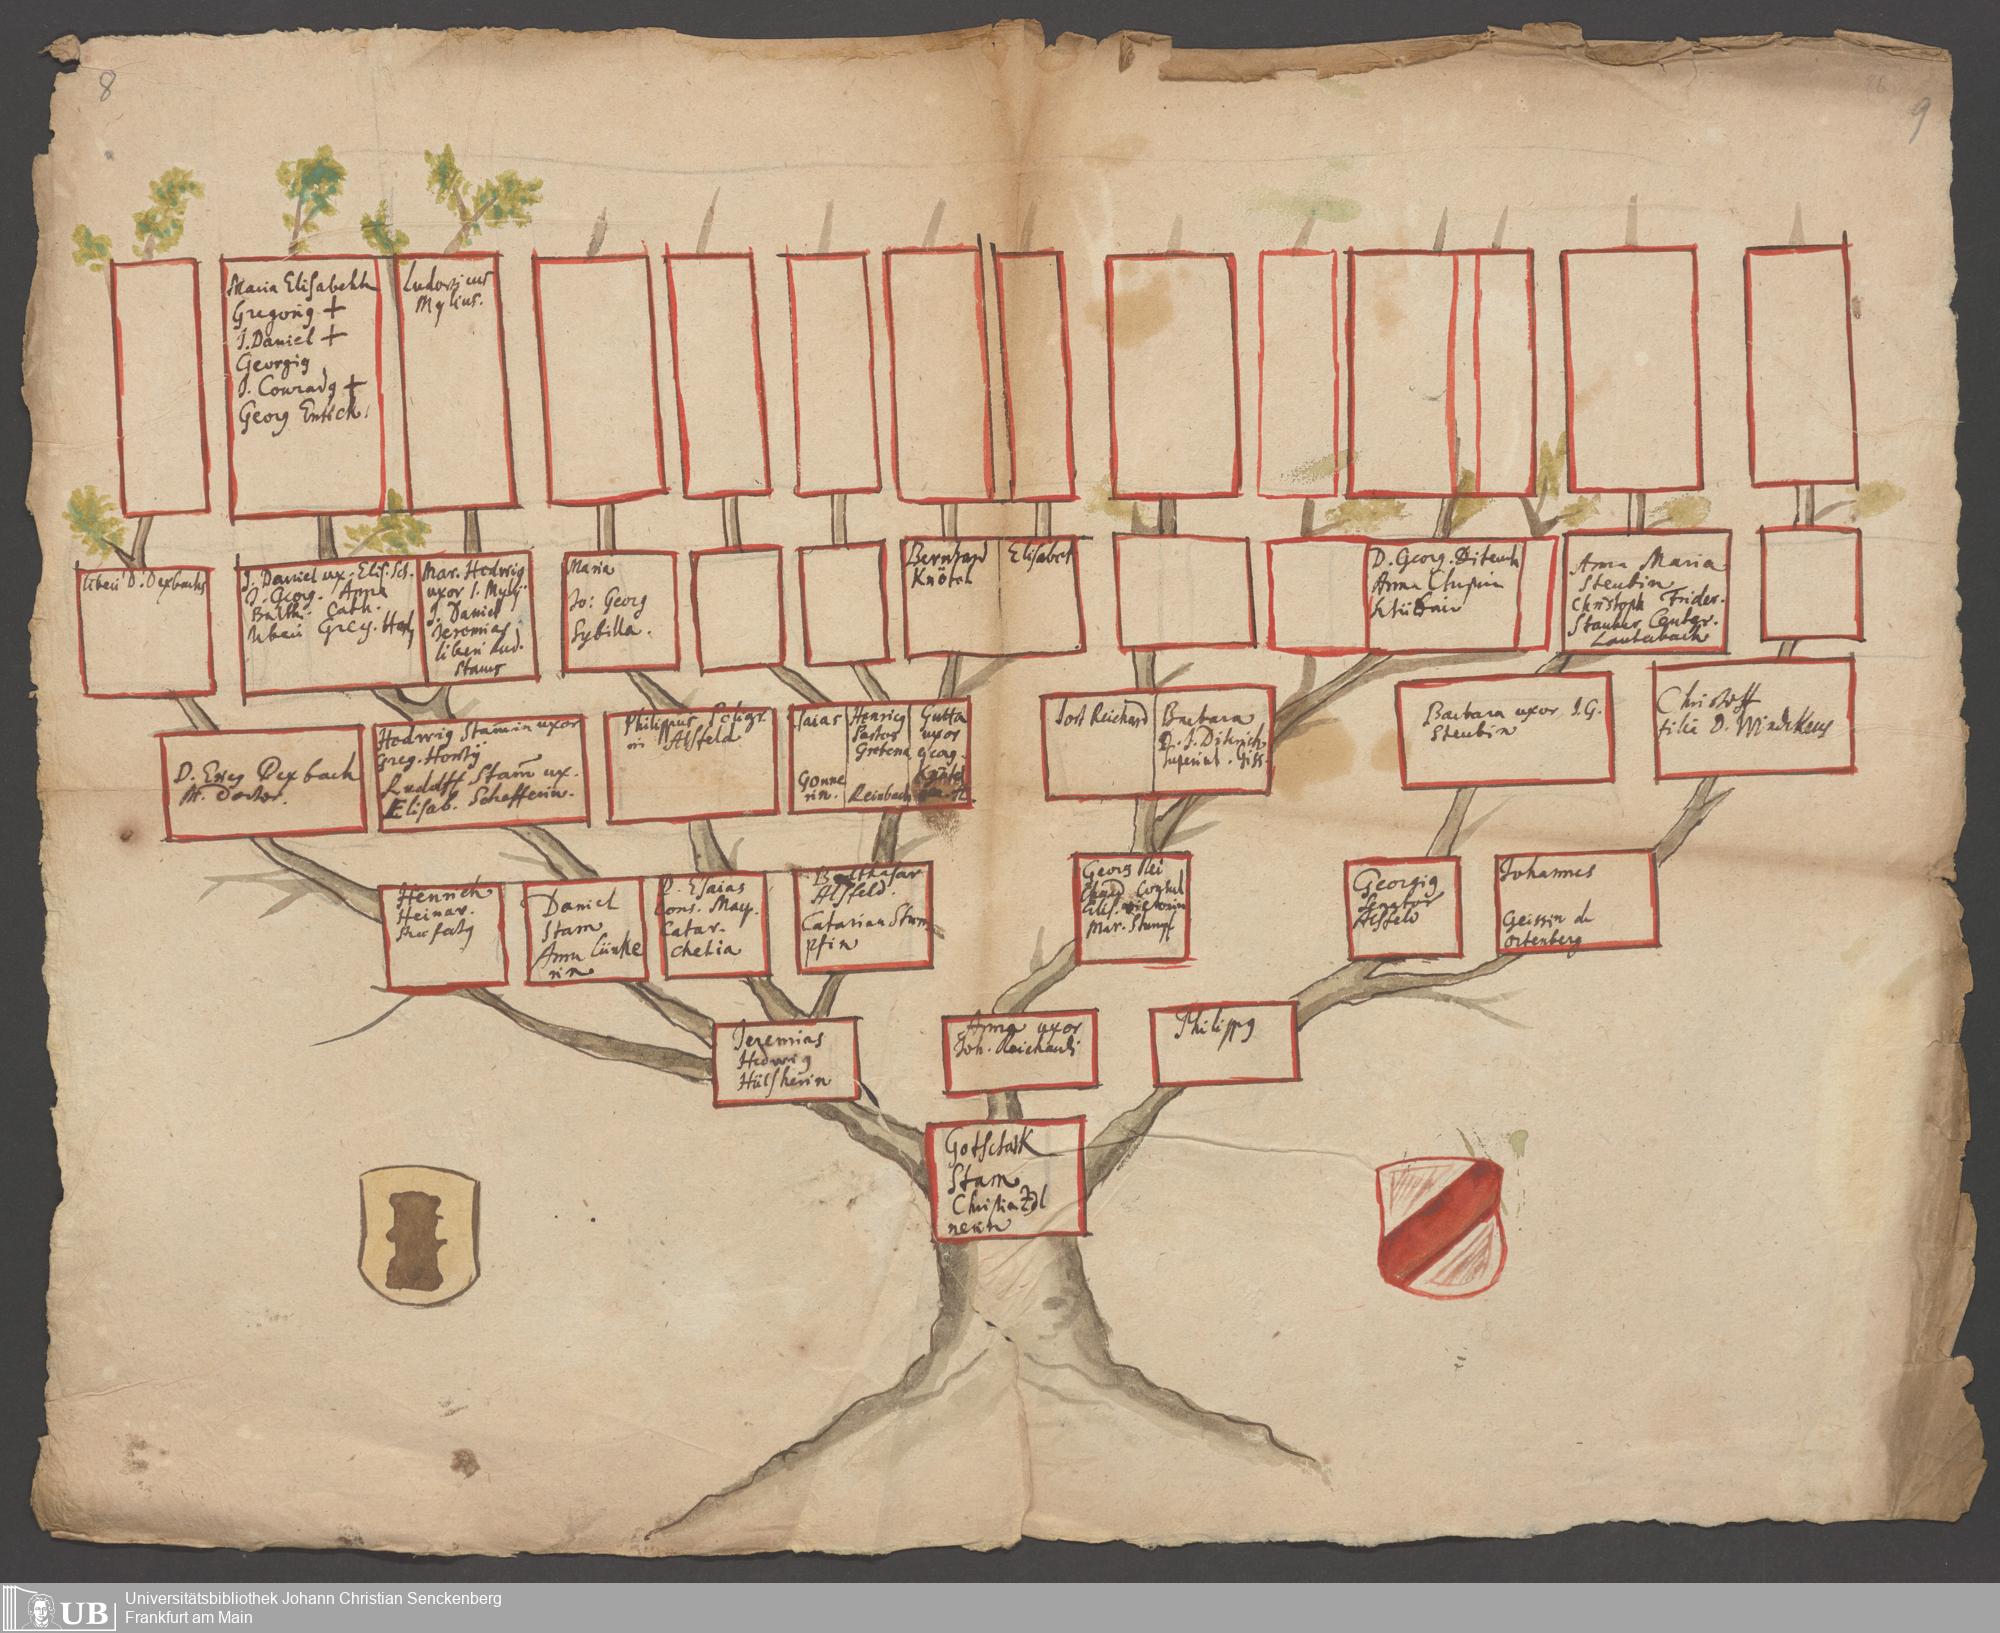 8
9
Maria Elisabeth
Gregorig +
J. Daniel +
Georgig
J. Conradg +
Georg
Ludovicus
Mylius.
liberi D. Dexbachs
J. Daniel ux. Elis. Sch.
J. Georg. Anna
Balth. Cath.
liberi Greg. Horstj
Mar. Hedwig
uxor J. Mylij
J. Daniel
Jeremias
liberi Lud.
Stams
Maria
Jo: Georg
Sybilla.
Bernhard
Knöten
Elisabet
D. Georg. Diterich
Anna
Anna Maria
Steubin
Christoph Frider.
Stauber Centgr.
Lauterbach
D. Dexbach
M. Doctor.
Hedwig Stam̄in uxor
Greg. Horstij
Ludolff Stam̄ ux.
Elisab. Schefferin.
Philippus
in Alsfeld
Esaias
Gonne
rin.
Henricg
Pastor
Grebena
Reinbach
Gutta
uxor
Georg.
Jost Reichard
Barbara
D. J. Diterich
Superint. Giss.
Barbara uxor J. G.
Steubin
Christoff
filia D. Winckeus
Henrich
Heinar.
Daniel
Stam
Anna Cünke
rin
D. Esaias
Cons. Marp.
Catar.
chelia
Balthasar
Alsfeld.
Catarina Stum
pfin
Georg Rei
chard Consul
Elis.
Mar. Stumpf
Georgig
Senator
Alsfeld
Johannes
Geissin de
Ortenberg
Jeremias
Hedwig
Hülsherin
Anna uxor
Joh. Reichardi
Philippg
Gotschalk
Stam
Christina
nerin
UB
Universitätsbibliothek Johann Christian Senckenberg
Frankfurt am Main